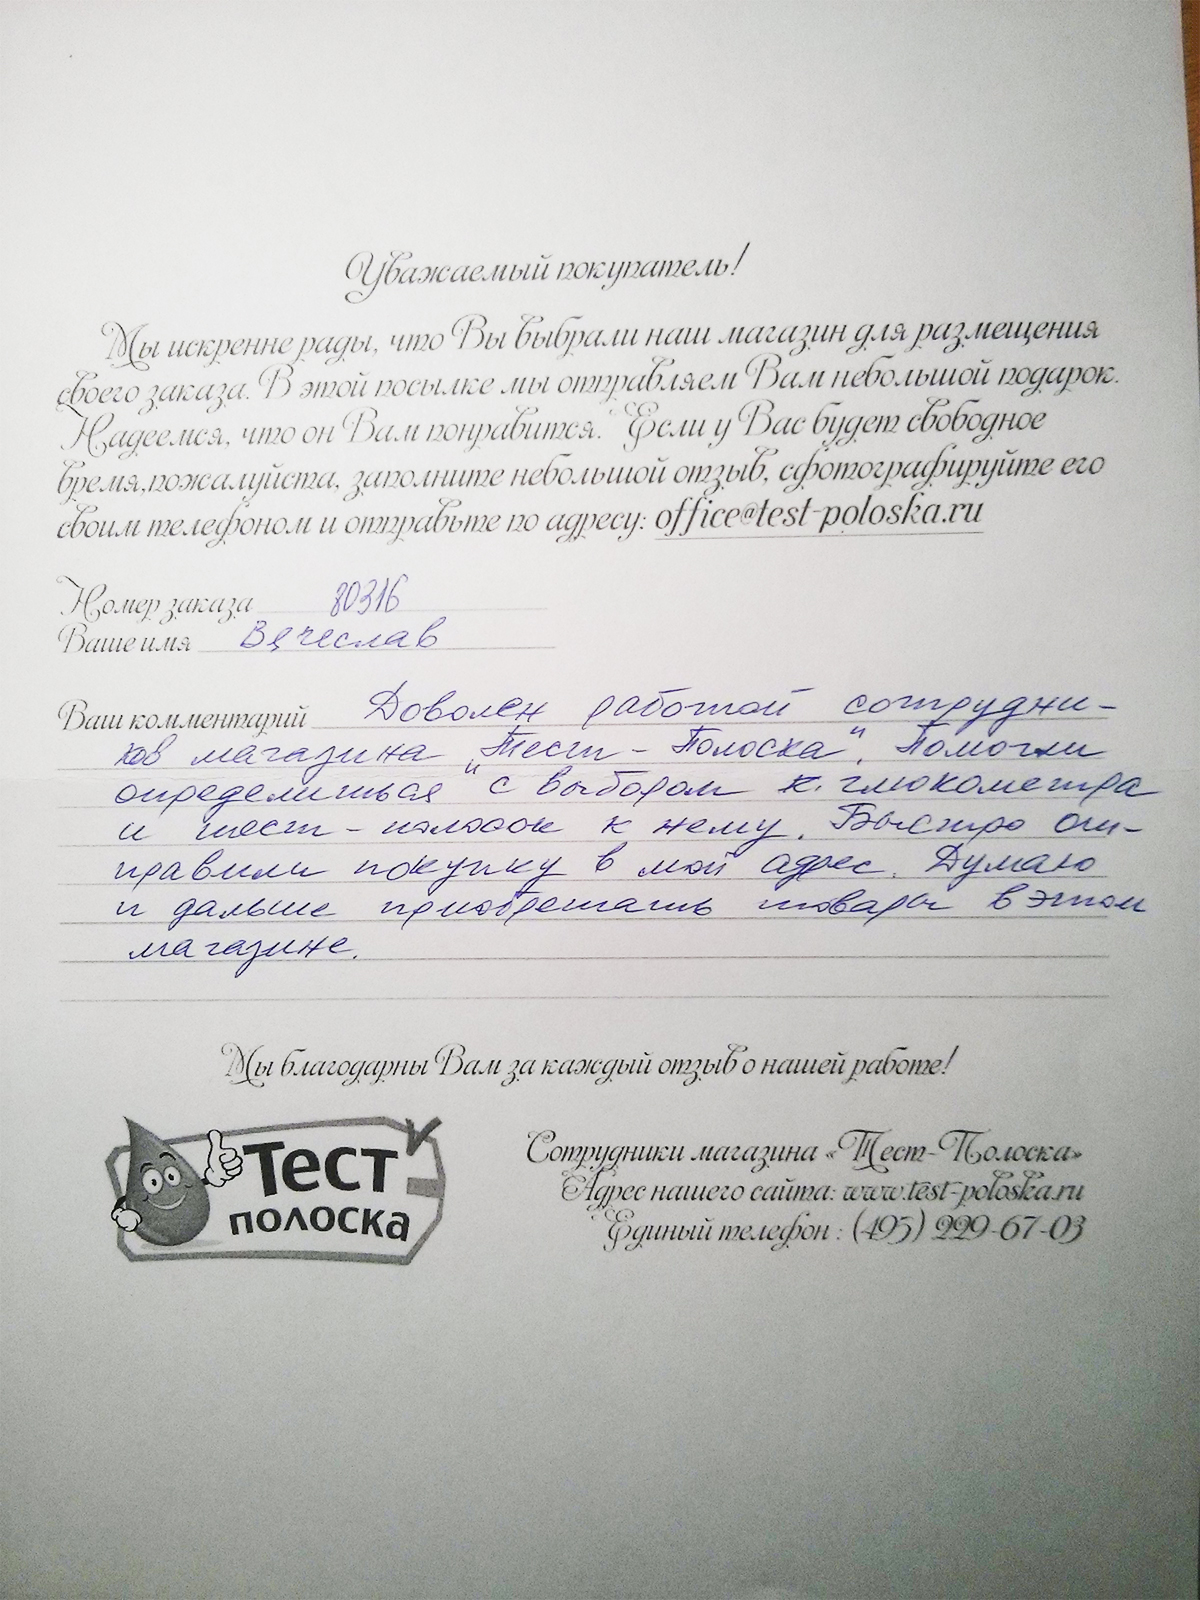 Уважаемый покупатель!
Мы искренне рады, что Вы выбрали наш магазин для размещения
своего заказа. В этой посылке мы отправляем Вам небольшой подарок.
Надеемся, что он Вам понравится. Если у Вас будет свободное
время,пожалуйста, заполните небольшой отзыв, сфотографируйте его
своим телефоном и отправьте по адресу: office@test-poloska.ru
Номер заказа 80316
Ваше имя Вячеслав
Ваш комментарий Доволен работой сотрудни-
ков магазина „Тест-Полоска". Помогли
определиться с выбором глюкометра
и тест-полосок к нему. Быстро от-
правили покупку в мой адрес. Думаю
и дальше приобретать товары в этом
магазине.
Мы благодарны Вам за каждый отзыв о нашей работе!
Тест
полоска
Сотрудники магазина «Тест-Полоска»
Адрес нашего сайта: www.test-poloska.ru
Единый телефон : (495) 229-67-03